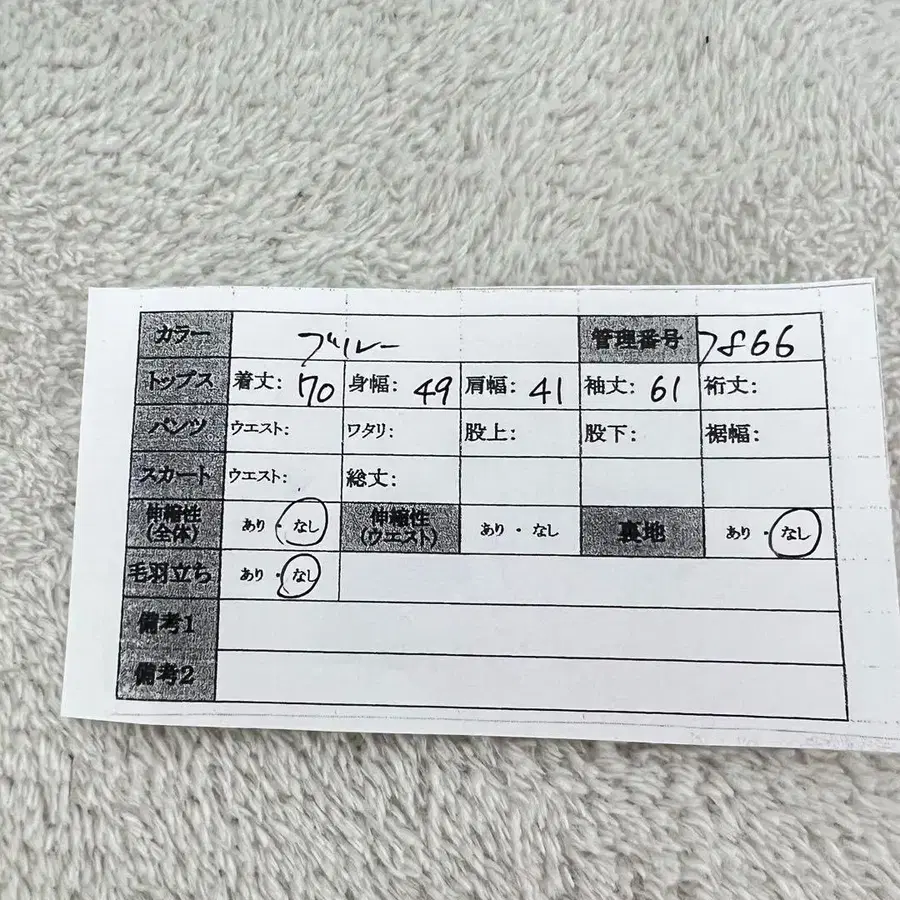 カラー ブルー 管理番号 7866
トップス 着丈: 70 身幅: 49 肩幅: 41 袖丈: 61 裄丈:
パンツ ウエスト: ワタリ: 股上: 股下: 裾幅:
スカート ウエスト: 総丈:
伸縮性(全体) あり・なし 伸縮性(ウエスト) あり・なし 裏地 あり・なし
毛羽立ち あり・なし
備考1
備考2